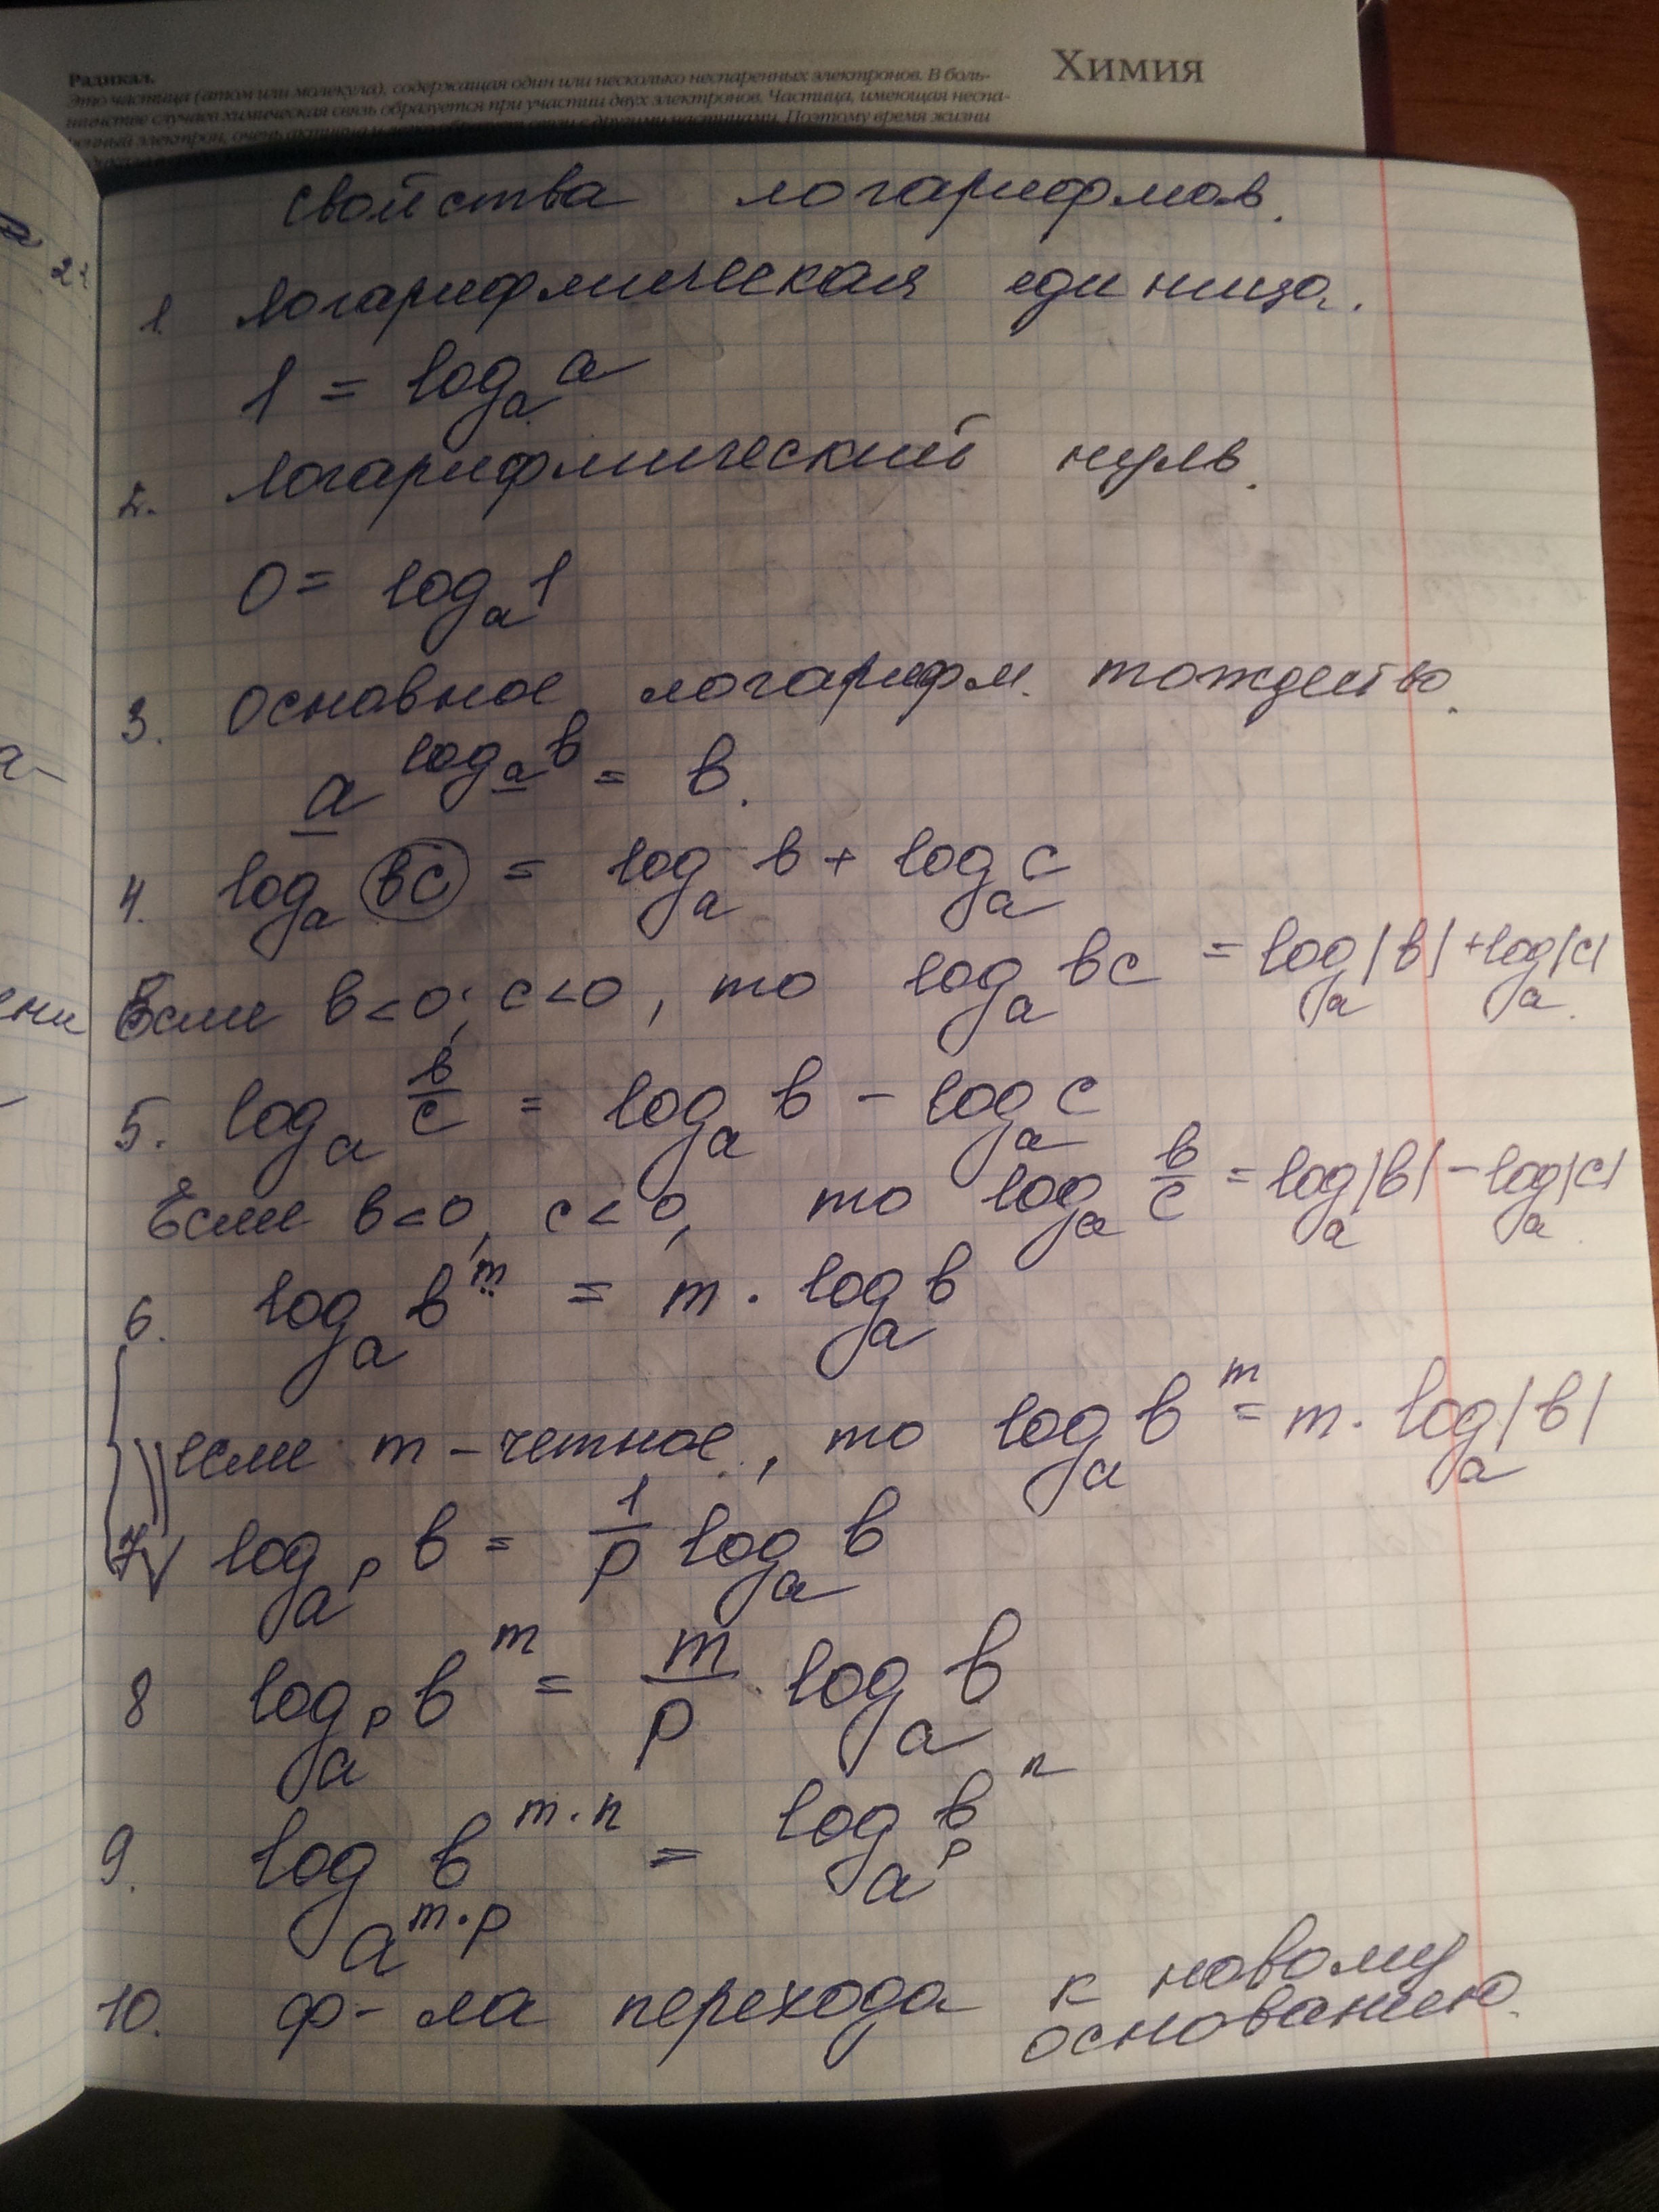 Химия
Радикал.
Это частица (атом или молекула), содержащая один или несколько неспаренных электронов. В боль-
шинстве случаев химическая связь образуется при участии двух электронов. Частица, имеющая неспа-
ренный электрон, очень активна и легко образует связи с другими частицами. Поэтому время жизни
свойства логарифмов.
1. Логарифмическая единица.
1 = log_a a
2. Логарифмический нуль.
0 = log_a 1
3. Основное логарифм. тождество.
a^(log_a b) = b.
4. log_a bc = log_a b + log_a c
Если b<0; c<0, то log_a bc = log_a |b| + log_a |c|.
5. log_a b/c = log_a b − log_a c
Если b<0, c<0, то log_a b/c = log_a |b| − log_a |c|.
6. log_a b^m = m · log_a b
если m – четное, то log_a b^m = m · log_a |b|
7. log_(a^p) b = 1/p log_a b
8 log_(a^p) b^m = m/p · log_a b
9. log_(a^(m·p)) b^(m·n) = log_(a^p) b^n
10. ф-ла перехода к новому
основанию.